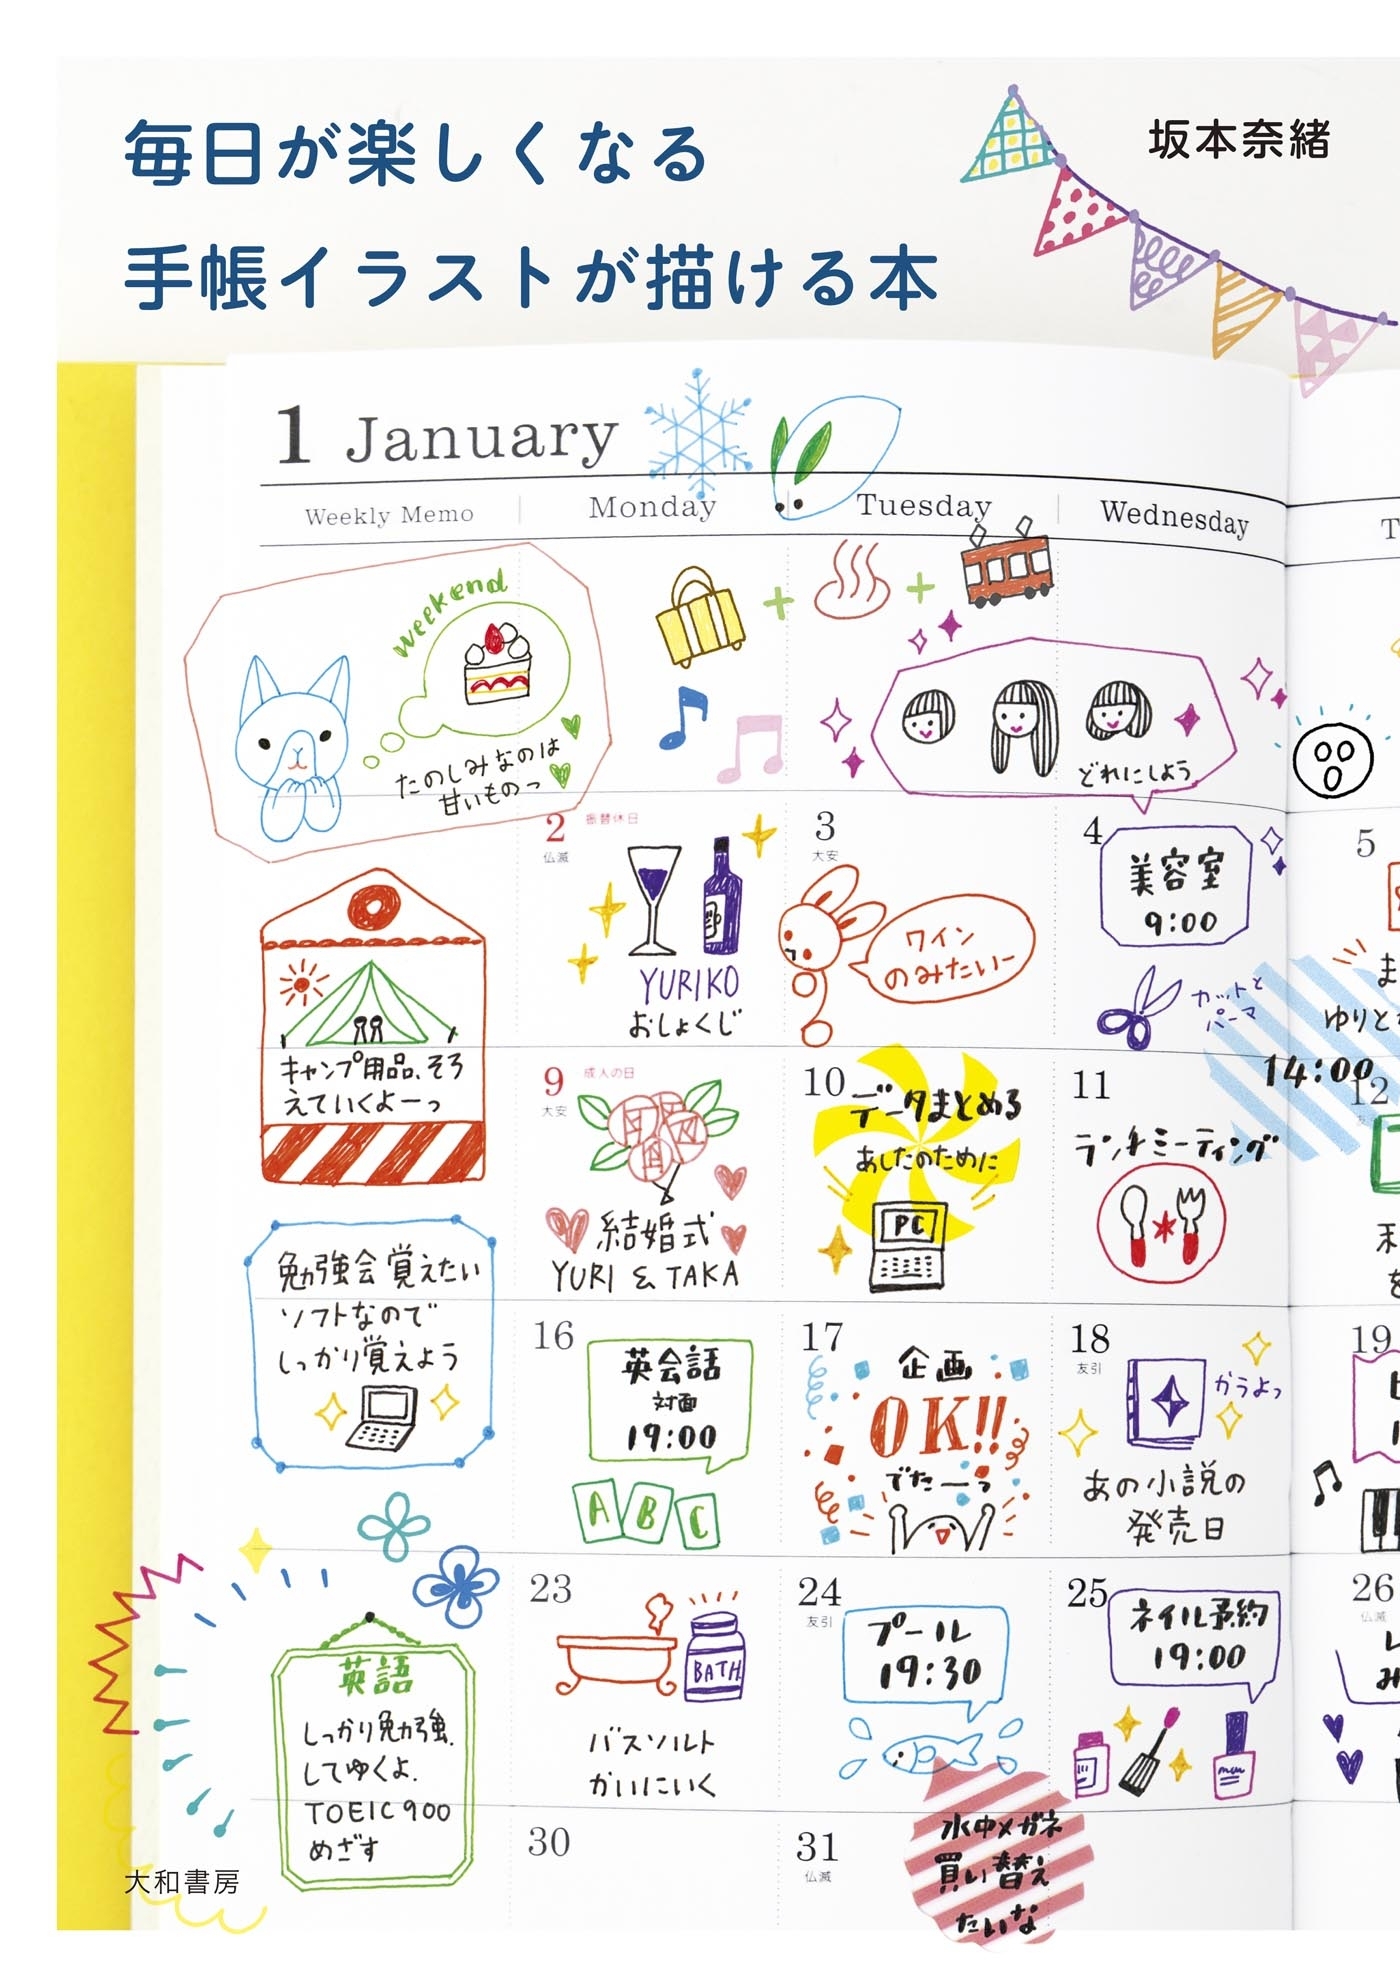 毎日が楽しくなる
手帳イラストが描ける本
坂本奈緒
1 January
Weekly Memo
Monday
Tuesday
Wednesday
T
weekend
たのしみなのは
甘いものっ
どれにしよう
2 振替休日
仏滅
YURIKO
おしょくじ
3
大安
ワイン
のみたいー
4
美容室
9:00
カットと
パーマ
5
ま
ゆりと
14:00
キャンプ用品、そろ
えていくよーっ
9 成人の日
大安
結婚式
YURI & TAKA
10
データまとめる
あしたのために
PC
11
ランチミーティング
12
勉強会 覚えたい
ソフトなので
しっかり覚えよう
16
英会話
対面
19:00
A B C
17
企画
OK!!
でたーっ
18
友引
かうよっ
あの小説の
発売日
19
英語
しっかり勉強、
してゆくよ。
TOEIC 900
めざす
23
BATH
バスソルト
かいにいく
24
友引
プール
19:30
25
ネイル予約
19:00
26
仏滅
30
31
仏滅
水中メガネ
買い替え
たいな
大和書房